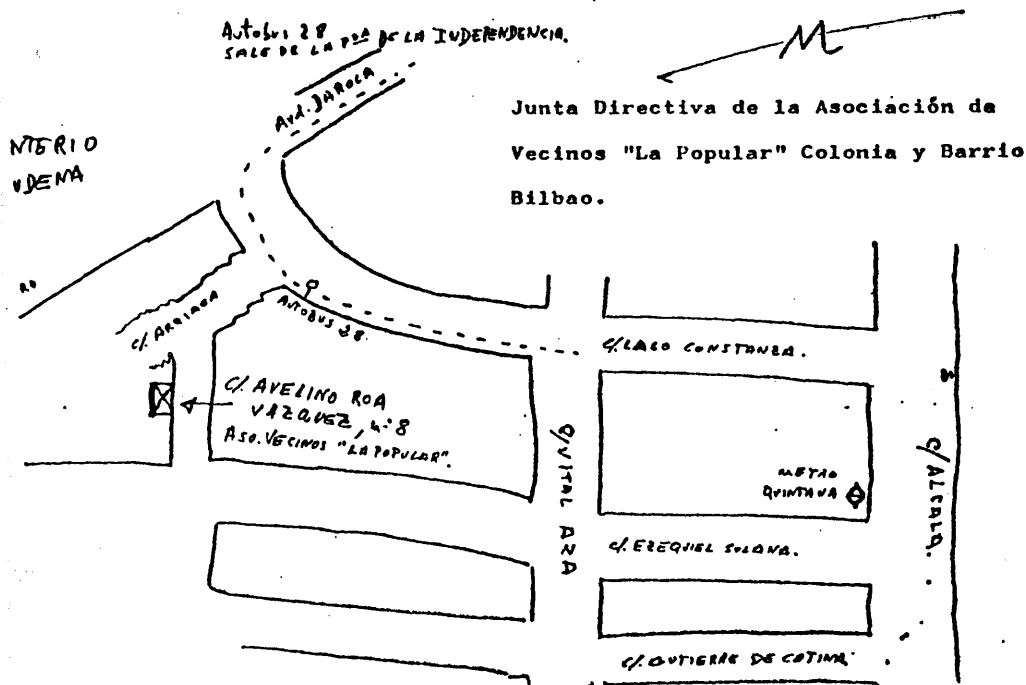 Autobus 28
SALE DE LA PZA DE LA INDEPENDENCIA.
Avd. DAROCA
Junta Directiva de la Asociación de
Vecinos "La Popular" Colonia y Barrio
Bilbao.
NTERIO
UDENA
RO
C/. ARRIAGA
AUTOBUS 28.
C/. LAGO CONSTANZA.
C/. AVELINO ROA
VAZQUEZ, nº 8
ASO. VECINOS "LA POPULAR".
C/ VITAL AZA
METRO
QUINTANA
C/ ALCALA.
C/. EZEQUIEL SOLANA.
C/. GUTIERRE DE CETINA